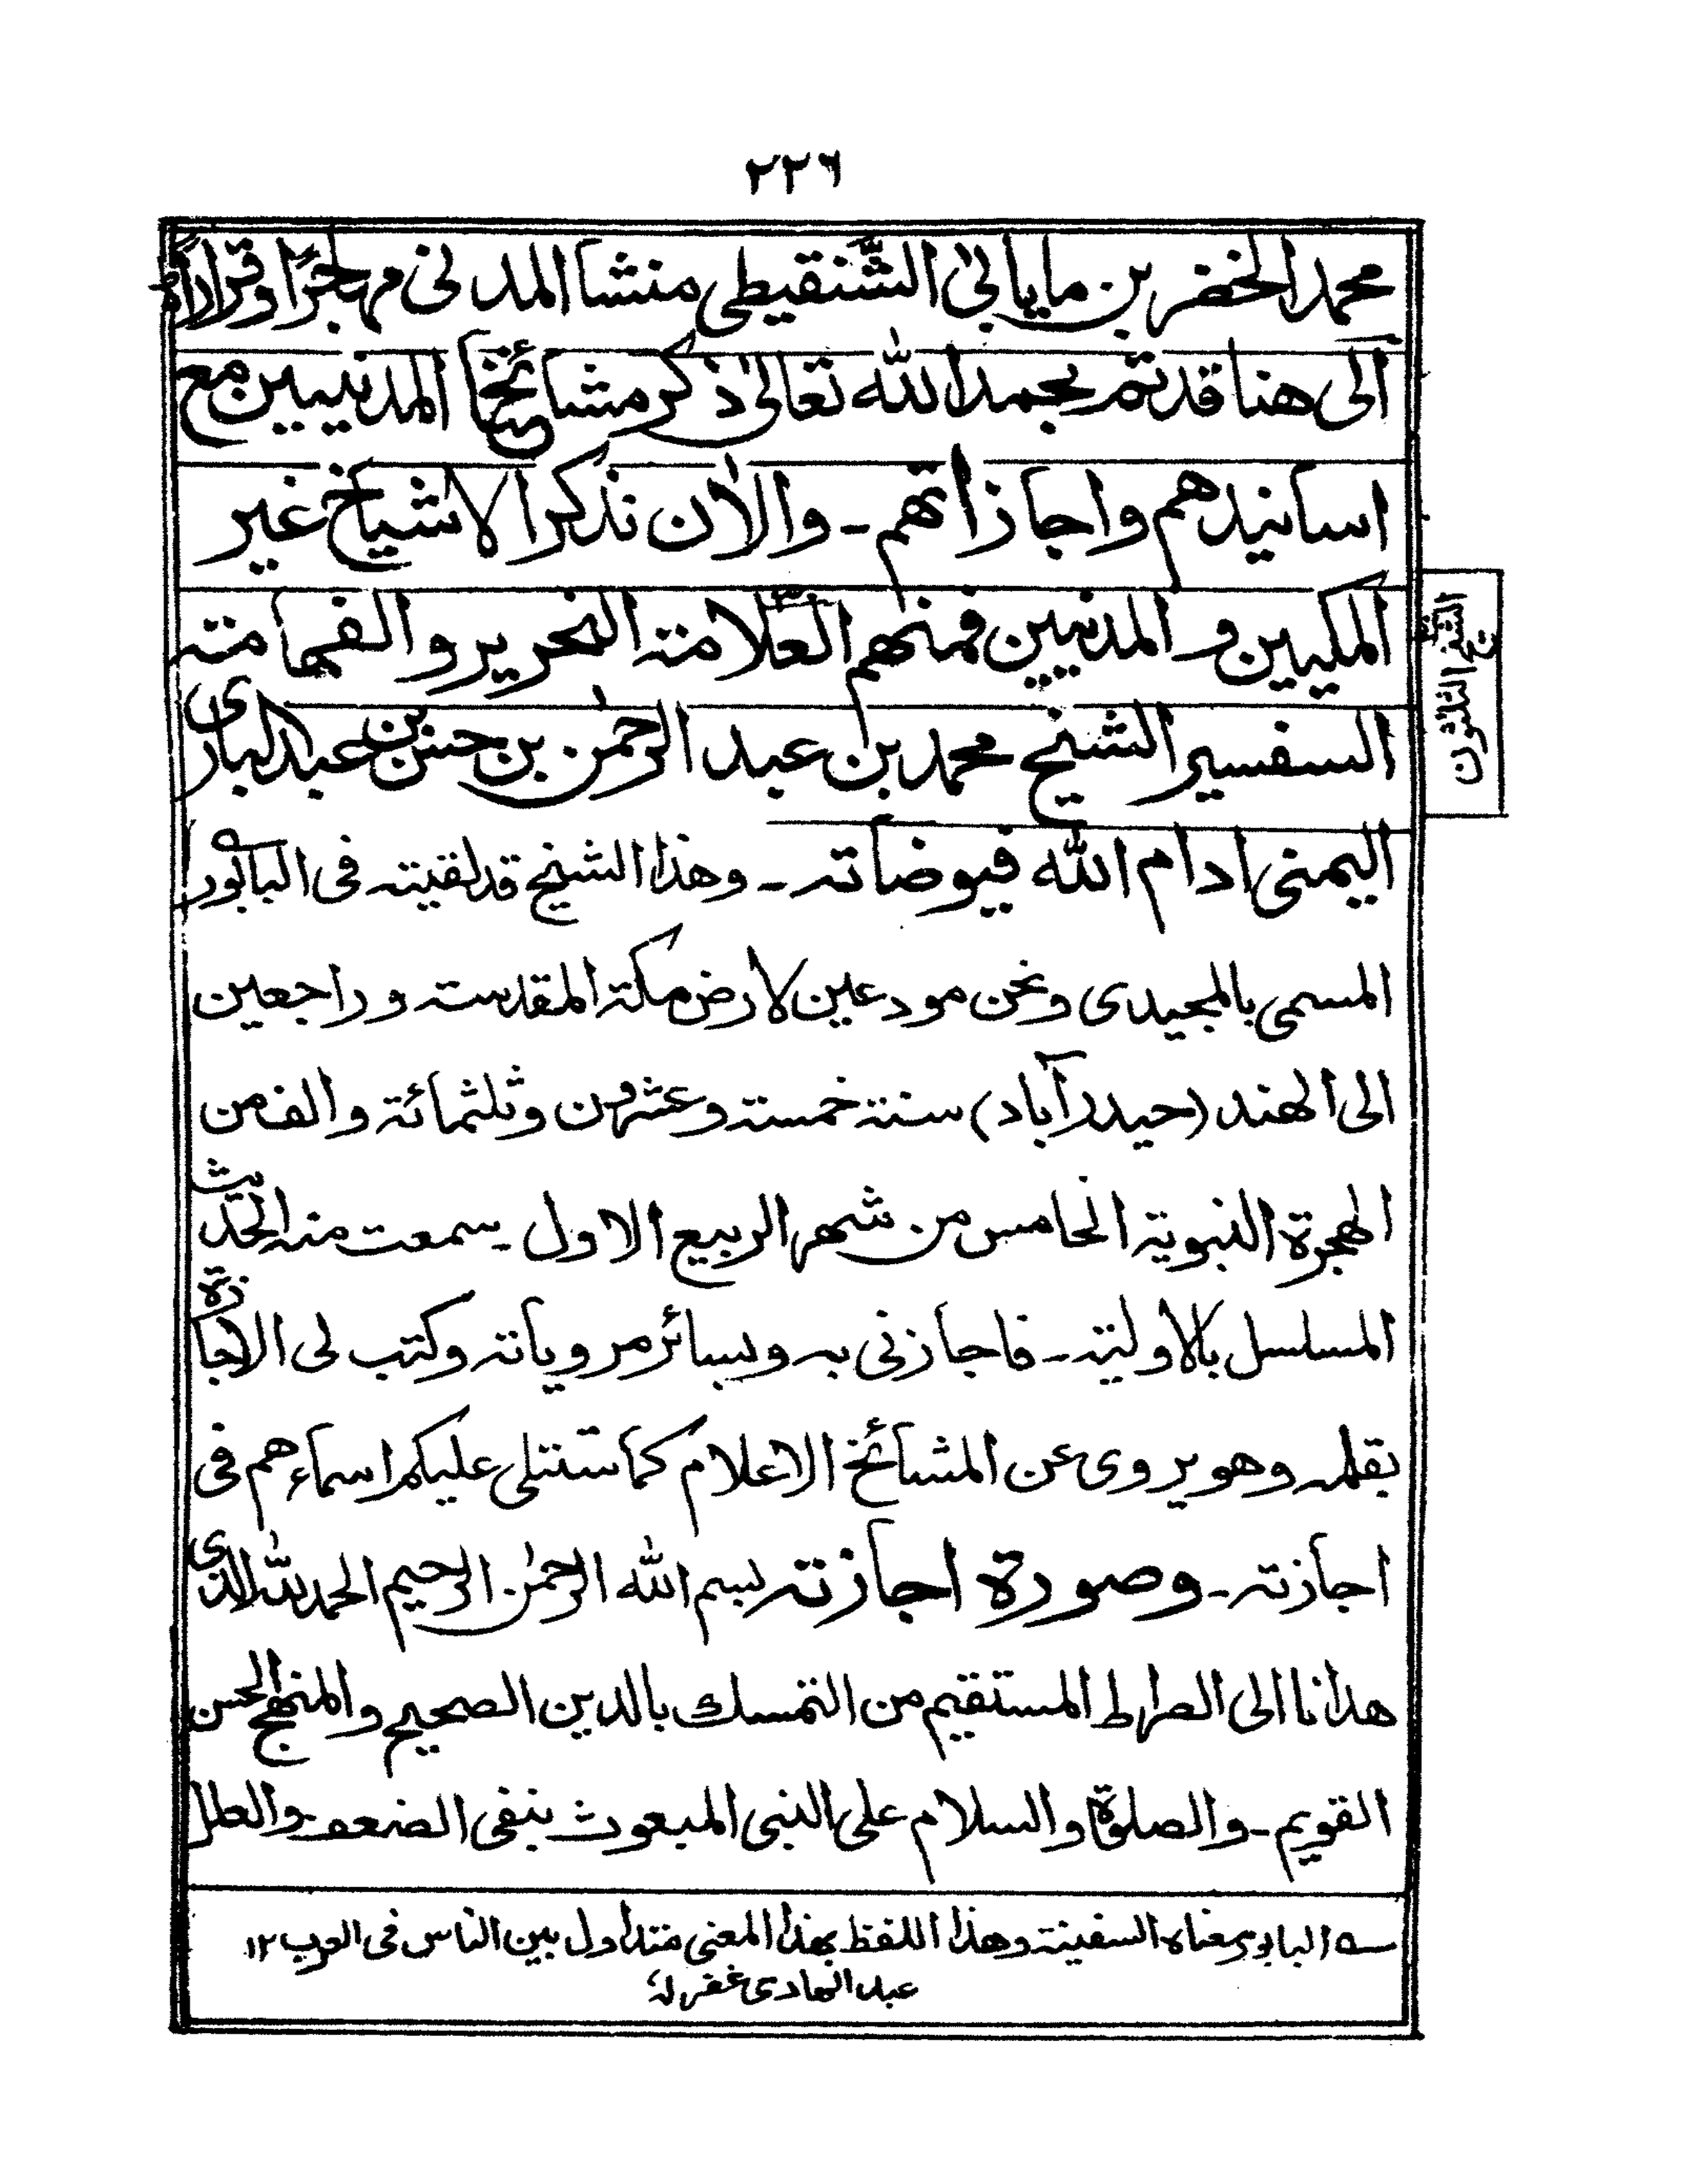 ٢٢٦
محمد الخضر بن مايابىٰ الشّنقيطى منشا المدنى مهاجرًا وقرارًا
الى هنا قد تم بحمد الله تعالىٰ ذكر مشائخنا المدنيين مع
اسانيدهم واجازاتهم ـ والاٰن نذكر الاشياخ غير
المكيين و المدنيين فمنهم العلامة النحرير و الفهامة
السفسير الشيخ محمد بن عبد الرحمٰن بن حسن بن عبد البارى
اليمنى ادام الله فيوضاته ـ وهذا الشيخ قد لقيته فى البابور
المسمى بالمجيدى ونحن مودعين لارض مكة المقدسة و راجعين
الى الهند (حيدرآباد) سنة خمسة وعشرين وثلثمائة والف من
الهجرة النبوية الخامس من شهر الربيع الاول ـ سمعت منه الحديث
المسلسل بالاولية ـ فاجازنى به وبسائر مروياته وكتب لى الاجازة
بقلمه وهو يروى عن المشائخ الاعلام كما ستتلى عليكم اسماءهم فى
اجازته ـ وصورة اجازته بسم الله الرحمٰن الرحيم الحمد لله الذى
هدانا الى الصراط المستقيم من التمسك بالدين الصحيح والمنهج الحسن
القويم ـ والصلوة والسلام على النبى المبعوث بنفى الضعف والعلل
الشيخ الثلثون
البابور معناه السفينة وهذا اللفظ بهذا المعنى متداول بين الناس فى العرب ١٢
عبد الهادى غفر له